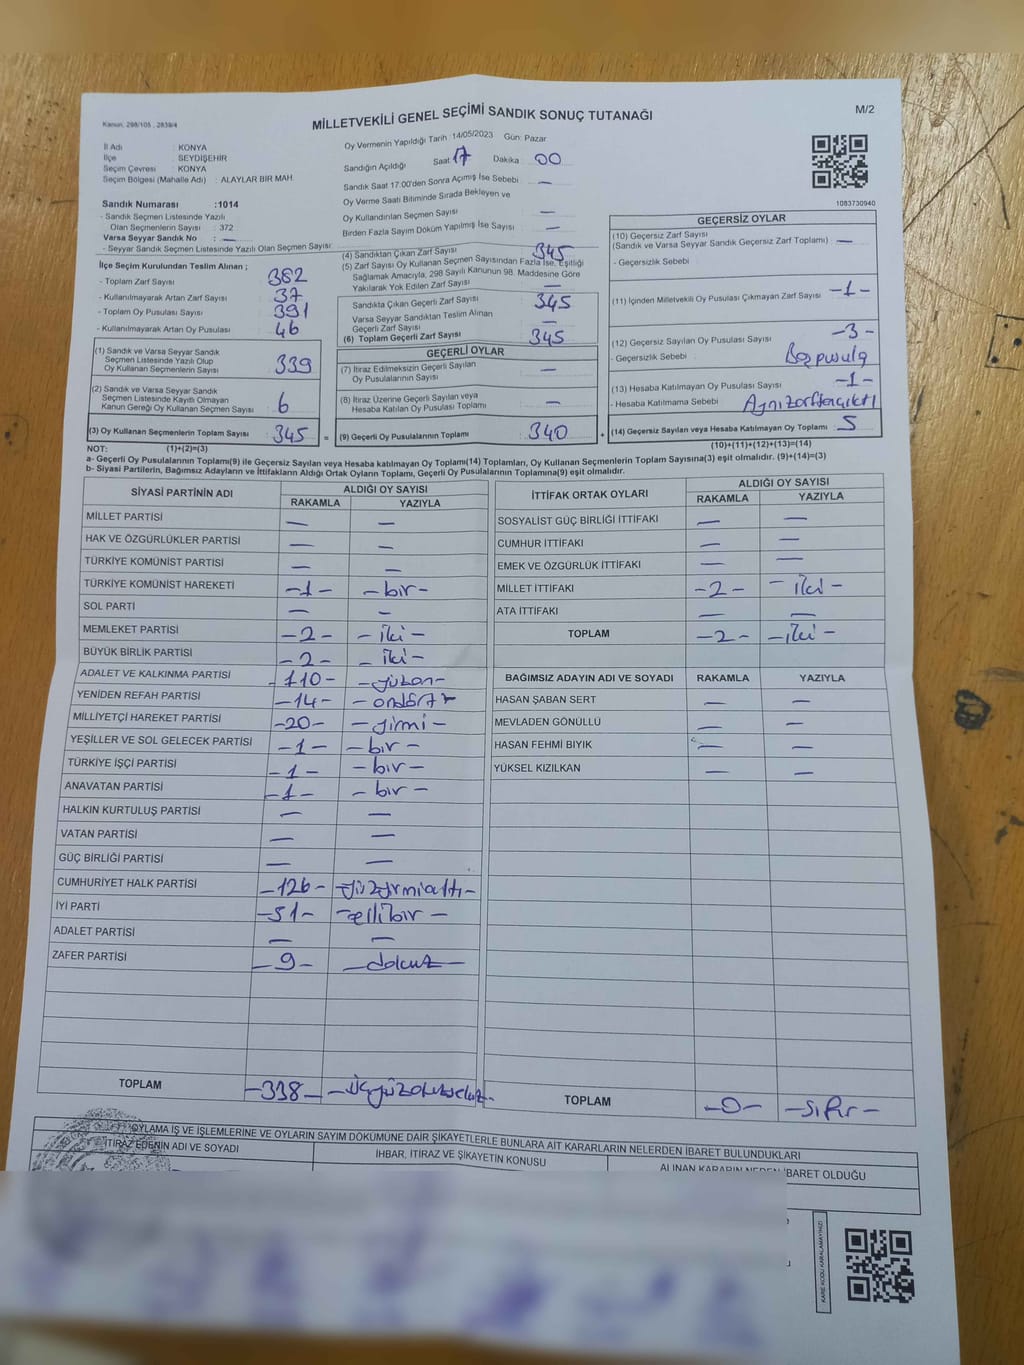 Kanun: 298/105 , 2839/4
MİLLETVEKİLİ GENEL SEÇİMİ SANDIK SONUÇ TUTANAĞI
M/2
İl Adı : KONYA
İlçe : SEYDİŞEHİR
Seçim Çevresi : KONYA
Seçim Bölgesi (Mahalle Adı) : ALAYLAR BİR MAH.
Sandık Numarası :1014
- Sandık Seçmen Listesinde Yazılı
Olan Seçmenlerin Sayısı : 372
Varsa Seyyar Sandık No : —
- Seyyar Sandık Seçmen Listesinde Yazılı Olan Seçmen Sayısı:
Oy Vermenin Yapıldığı Tarih :14/05/2023 Gün: Pazar
Sandığın Açıldığı Saat 17 Dakika 00
Sandık Saat 17:00'den Sonra Açımış İse Sebebi —
Oy Verme Saati Bitiminde Sırada Bekleyen ve
Oy Kullandırılan Seçmen Sayısı —
Birden Fazla Sayım Döküm Yapılmış İse Sayısı —
1083730940
İlçe Seçim Kurulundan Teslim Alınan ;
- Toplam Zarf Sayısı 382
- Kullanılmayarak Artan Zarf Sayısı 37
- Toplam Oy Pusulası Sayısı 391
- Kullanılmayarak Artan Oy Pusulası 46
(1) Sandık ve Varsa Seyyar Sandık
Seçmen Listesinde Yazılı Olup
Oy Kullanan Seçmenlerin Sayısı 339
(2) Sandık ve Varsa Seyyar Sandık
Seçmen Listesinde Kayıtlı Olmayan
Kanun Gereği Oy Kullanan Seçmen Sayısı 6
(3) Oy Kullanan Seçmenlerin Toplam Sayısı 345 =
(4) Sandıktan Çıkan Zarf Sayısı 345
(5) Zarf Sayısı Oy Kullanan Seçmen Sayısından Fazla İse, Eşitliği
Sağlamak Amacıyla, 298 Sayılı Kanunun 98. Maddesine Göre
Yakılarak Yok Edilen Zarf Sayısı —
Sandıkta Çıkan Geçerli Zarf Sayısı 345
Varsa Seyyar Sandıktan Teslim Alınan
Geçerli Zarf Sayısı —
(6) Toplam Geçerli Zarf Sayısı 345
GEÇERLİ OYLAR
(7) İtiraz Edilmeksizin Geçerli Sayılan
Oy Pusulalarının Sayısı —
(8) İtiraz Üzerine Geçerli Sayılan veya
Hesaba Katılan Oy Pusulası Toplamı —
(9) Geçerli Oy Pusulalarının Toplamı 340 +
GEÇERSİZ OYLAR
(10) Geçersiz Zarf Sayısı
(Sandık ve Varsa Seyyar Sandık Geçersiz Zarf Toplamı) —
- Geçersizlik Sebebi
(11) İçinden Milletvekili Oy Pusulası Çıkmayan Zarf Sayısı -1-
(12) Geçersiz Sayılan Oy Pusulası Sayısı -3-
- Geçersizlik Sebebi Boş pusula
(13) Hesaba Katılmayan Oy Pusulası Sayısı -1-
- Hesaba Katılmama Sebebi Aynı zarftan çıktı
(14) Geçersiz Sayılan veya Hesaba Katılmayan Oy Toplamı 5
NOT: (1)+(2)=(3) (10)+(11)+(12)+(13)=(14)
a- Geçerli Oy Pusulalarının Toplamı(9) ile Geçersiz Sayılan veya Hesaba katılmayan Oy Toplamı(14) Toplamları, Oy Kullanan Seçmenlerin Toplam Sayısına(3) eşit olmalıdır. (9)+(14)=(3)
b- Siyasi Partilerin, Bağımsız Adayların ve İttifakların Aldığı Ortak Oyların Toplamı, Geçerli Oy Pusulalarının Toplamına(9) eşit olmalıdır.
SİYASİ PARTİNİN ADI ALDIĞI OY SAYISI
RAKAMLA YAZIYLA
MİLLET PARTİSİ — —
HAK VE ÖZGÜRLÜKLER PARTİSİ — —
TÜRKİYE KOMÜNİST PARTİSİ — —
TÜRKİYE KOMÜNİST HAREKETİ -1- -bir-
SOL PARTİ — —
MEMLEKET PARTİSİ -2- -iki-
BÜYÜK BİRLİK PARTİSİ -2- -iki-
ADALET VE KALKINMA PARTİSİ -110- -yüzon-
YENİDEN REFAH PARTİSİ -14- -ondört-
MİLLİYETÇİ HAREKET PARTİSİ -20- -yirmi-
YEŞİLLER VE SOL GELECEK PARTİSİ -1- -bir-
TÜRKİYE İŞÇİ PARTİSİ -1- -bir-
ANAVATAN PARTİSİ -1- -bir-
HALKIN KURTULUŞ PARTİSİ — —
VATAN PARTİSİ — —
GÜÇ BİRLİĞİ PARTİSİ — —
CUMHURİYET HALK PARTİSİ -126- -yüzyirmialtı-
İYİ PARTİ -51- -ellibir-
ADALET PARTİSİ — —
ZAFER PARTİSİ -9- -dokuz-
TOPLAM -338- -üçyüzotuzsekiz-
İTTİFAK ORTAK OYLARI ALDIĞI OY SAYISI
RAKAMLA YAZIYLA
SOSYALİST GÜÇ BİRLİĞİ İTTİFAKI — —
CUMHUR İTTİFAKI — —
EMEK VE ÖZGÜRLÜK İTTİFAKI — —
MİLLET İTTİFAKI -2- -iki-
ATA İTTİFAKI — —
TOPLAM -2- -iki-
BAĞIMSIZ ADAYIN ADI VE SOYADI RAKAMLA YAZIYLA
HASAN ŞABAN SERT — —
MEVLADEN GÖNÜLLÜ — —
HASAN FEHMİ BIYIK — —
YÜKSEL KIZILKAN — —
TOPLAM -0- -sıfır-
OYLAMA İŞ VE İŞLEMLERİNE VE OYLARIN SAYIM DÖKÜMÜNE DAİR ŞİKAYETLERLE BUNLARA AİT KARARLARIN NELERDEN İBARET BULUNDUKLARI
İTİRAZ EDENİN ADI VE SOYADI
İHBAR, İTİRAZ VE ŞİKAYETİN KONUSU
ALINAN KARARIN NEDEN İBARET OLDUĞU
KARE KODU KARALAMAYINIZ!